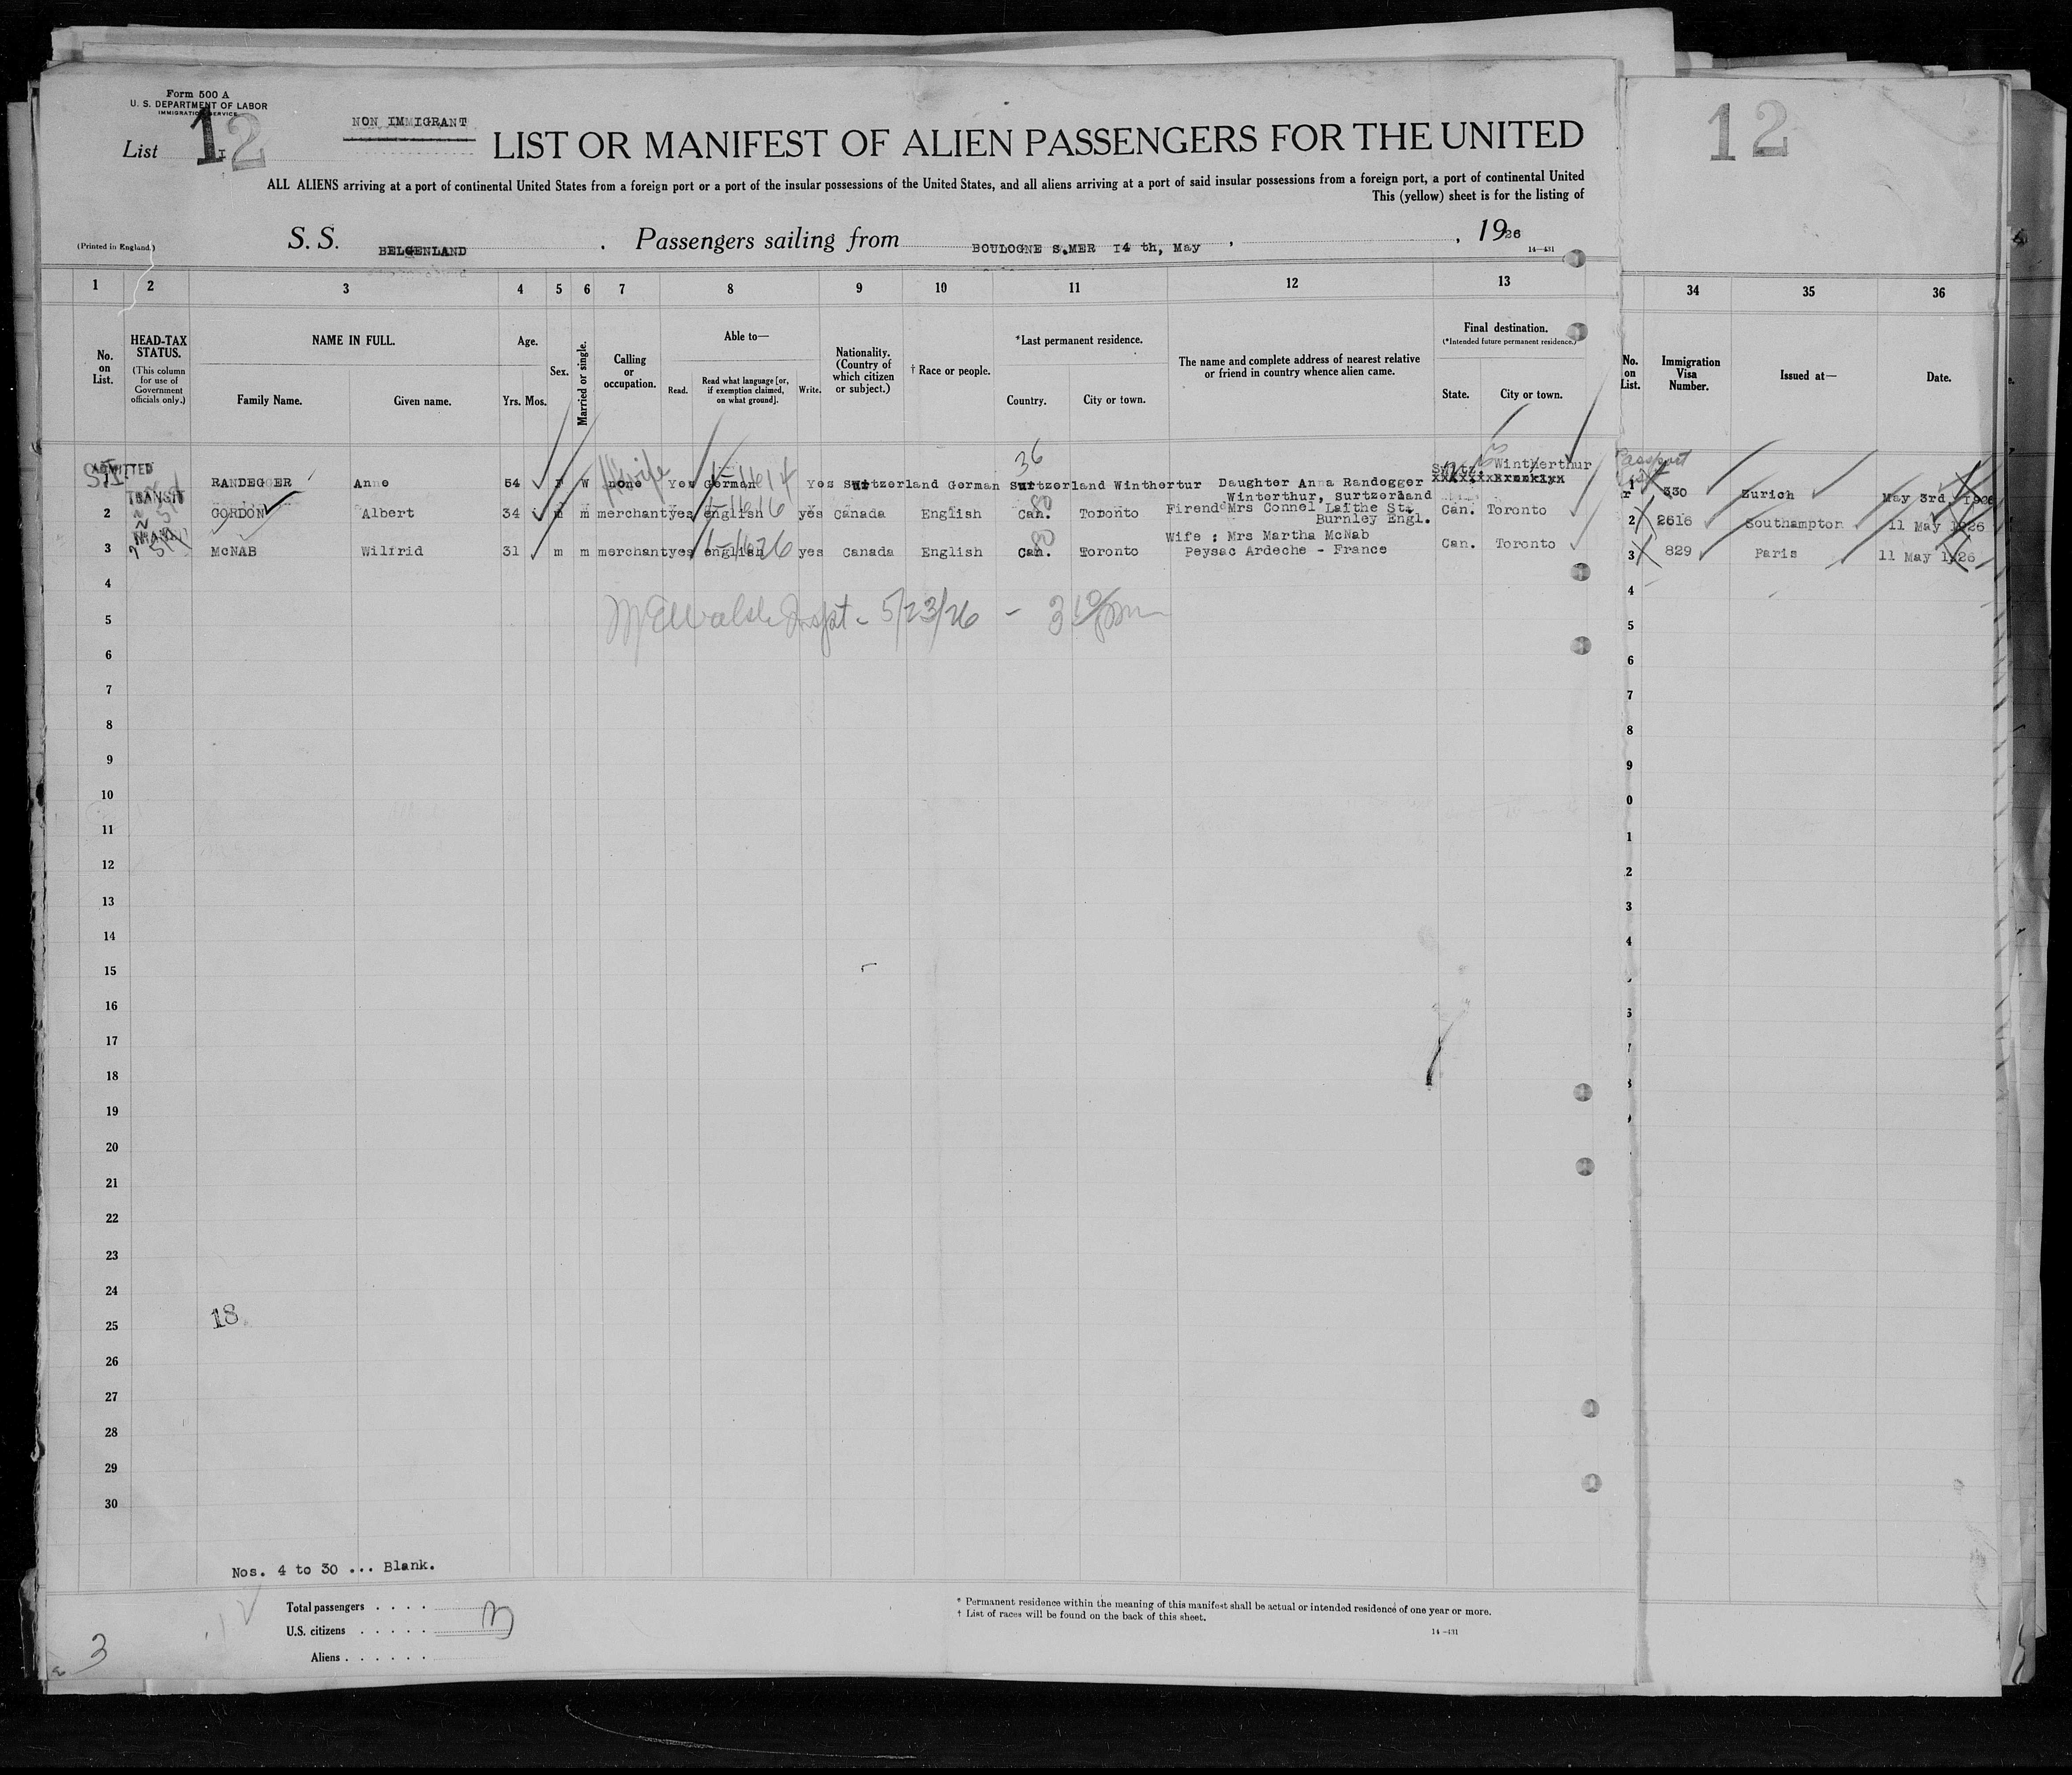 Form 500 A
U. S. DEPARTMENT OF LABOR
IMMIGRATION SERVICE
List 12
NON IMMIGRANT
LIST OR MANIFEST OF ALIEN PASSENGERS FOR THE UNITED
12
ALL ALIENS arriving at a port of continental United States from a foreign port or a port of the insular possessions of the United States, and all aliens arriving at a port of said insular possessions from a foreign port, a port of continental United
This (yellow) sheet is for the listing of
(Printed in England.)
S. S. BELGENLAND . Passengers sailing from BOULOGNE S.MER I4 th, May , , 1926
14—431
1 2 3 4 5 6 7 8 9 10 11 12 13 34 35 36
No. on List.
HEAD-TAX STATUS.
(This column for use of Government officials only.)
NAME IN FULL.
Family Name. Given name.
Age.
Yrs. Mos.
Sex.
Married or single.
Calling or occupation.
Able to—
Read. Read what language [or, if exemption claimed, on what ground]. Write.
Nationality. (Country of which citizen or subject.)
† Race or people.
*Last permanent residence.
Country. City or town.
The name and complete address of nearest relative or friend in country whence alien came.
Final destination.
(*Intended future permanent residence.)
State. City or town.
No. on List.
Immigration Visa Number.
Issued at—
Date.
ADMITTED
36
Passport
RANDEGGER Anne 54 F W none Yes German Yes Surtzerland German Surtzerland Winthertur Daughter Anna Randegger Winthorthur 1 330 Zurich May 3rd, 1926
Winterthur, Surtzerland
TRANSIT
2 GORDON Albert 34 m m merchant yes english yes Canada English Can. 80 Toronto Firend Mrs Connel Laithe St. Can. Toronto 2 2616 Southampton 11 May 1926
Burnley Engl.
3 McNAB Wilfrid 31 m m merchant yes english yes Canada English Can. 80 Toronto Wife : Mrs Martha McNab Can. Toronto 3 829 Paris 11 May 1926
Peysac Ardeche - France
4
5 5/23/26
6
7
8
9
10
11
12
13
14
15
16
17
18
19
20
21
22
23
24
18
25
26
27
28
29
30
Nos. 4 to 30 ... Blank.
Total passengers . . . .
U.S. citizens . . . . .
Aliens . . . . . .
3
* Permanent residence within the meaning of this manifest shall be actual or intended residence of one year or more.
† List of races will be found on the back of this sheet.
14—431